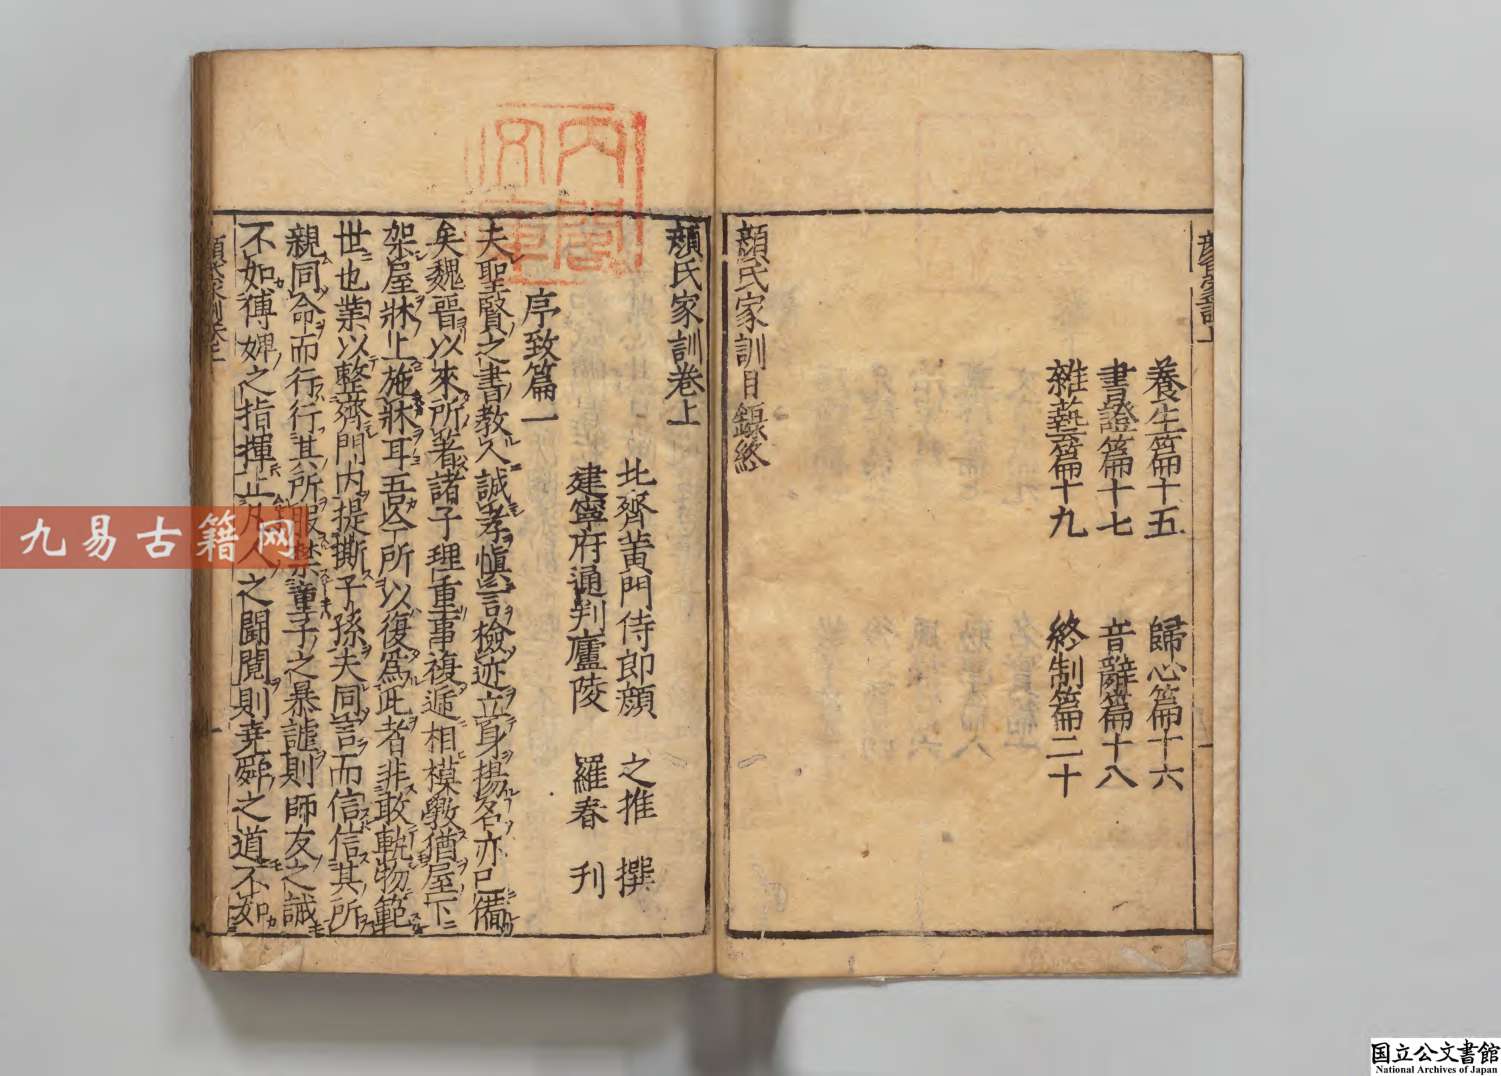 養生篇十五 歸心篇十六
書證篇十七 音辭篇十八
雜藝篇十九 終制篇二十
顏氏家訓目錄終
顏氏家訓卷上
北齊黃門侍郎顏 之推 撰
建寧府通判廬陵 羅春 刊
序致篇一
夫聖賢之書教人誠孝慎言檢迹立身揚名亦已備
矣魏晉以來所著諸子理重事複遞相模斆猶屋下
架屋牀上施牀耳吾今所以復爲此者非敢軌物範
世也業以整齊門内提撕子孫夫同言而信信其所
親同命而行行其所服禁童子之暴謔則師友之誡
不如傅婢之指揮止凡人之鬪鬩則堯舜之道不如
内閣文庫
九易古籍网
国立公文書館
National Archives of Japan